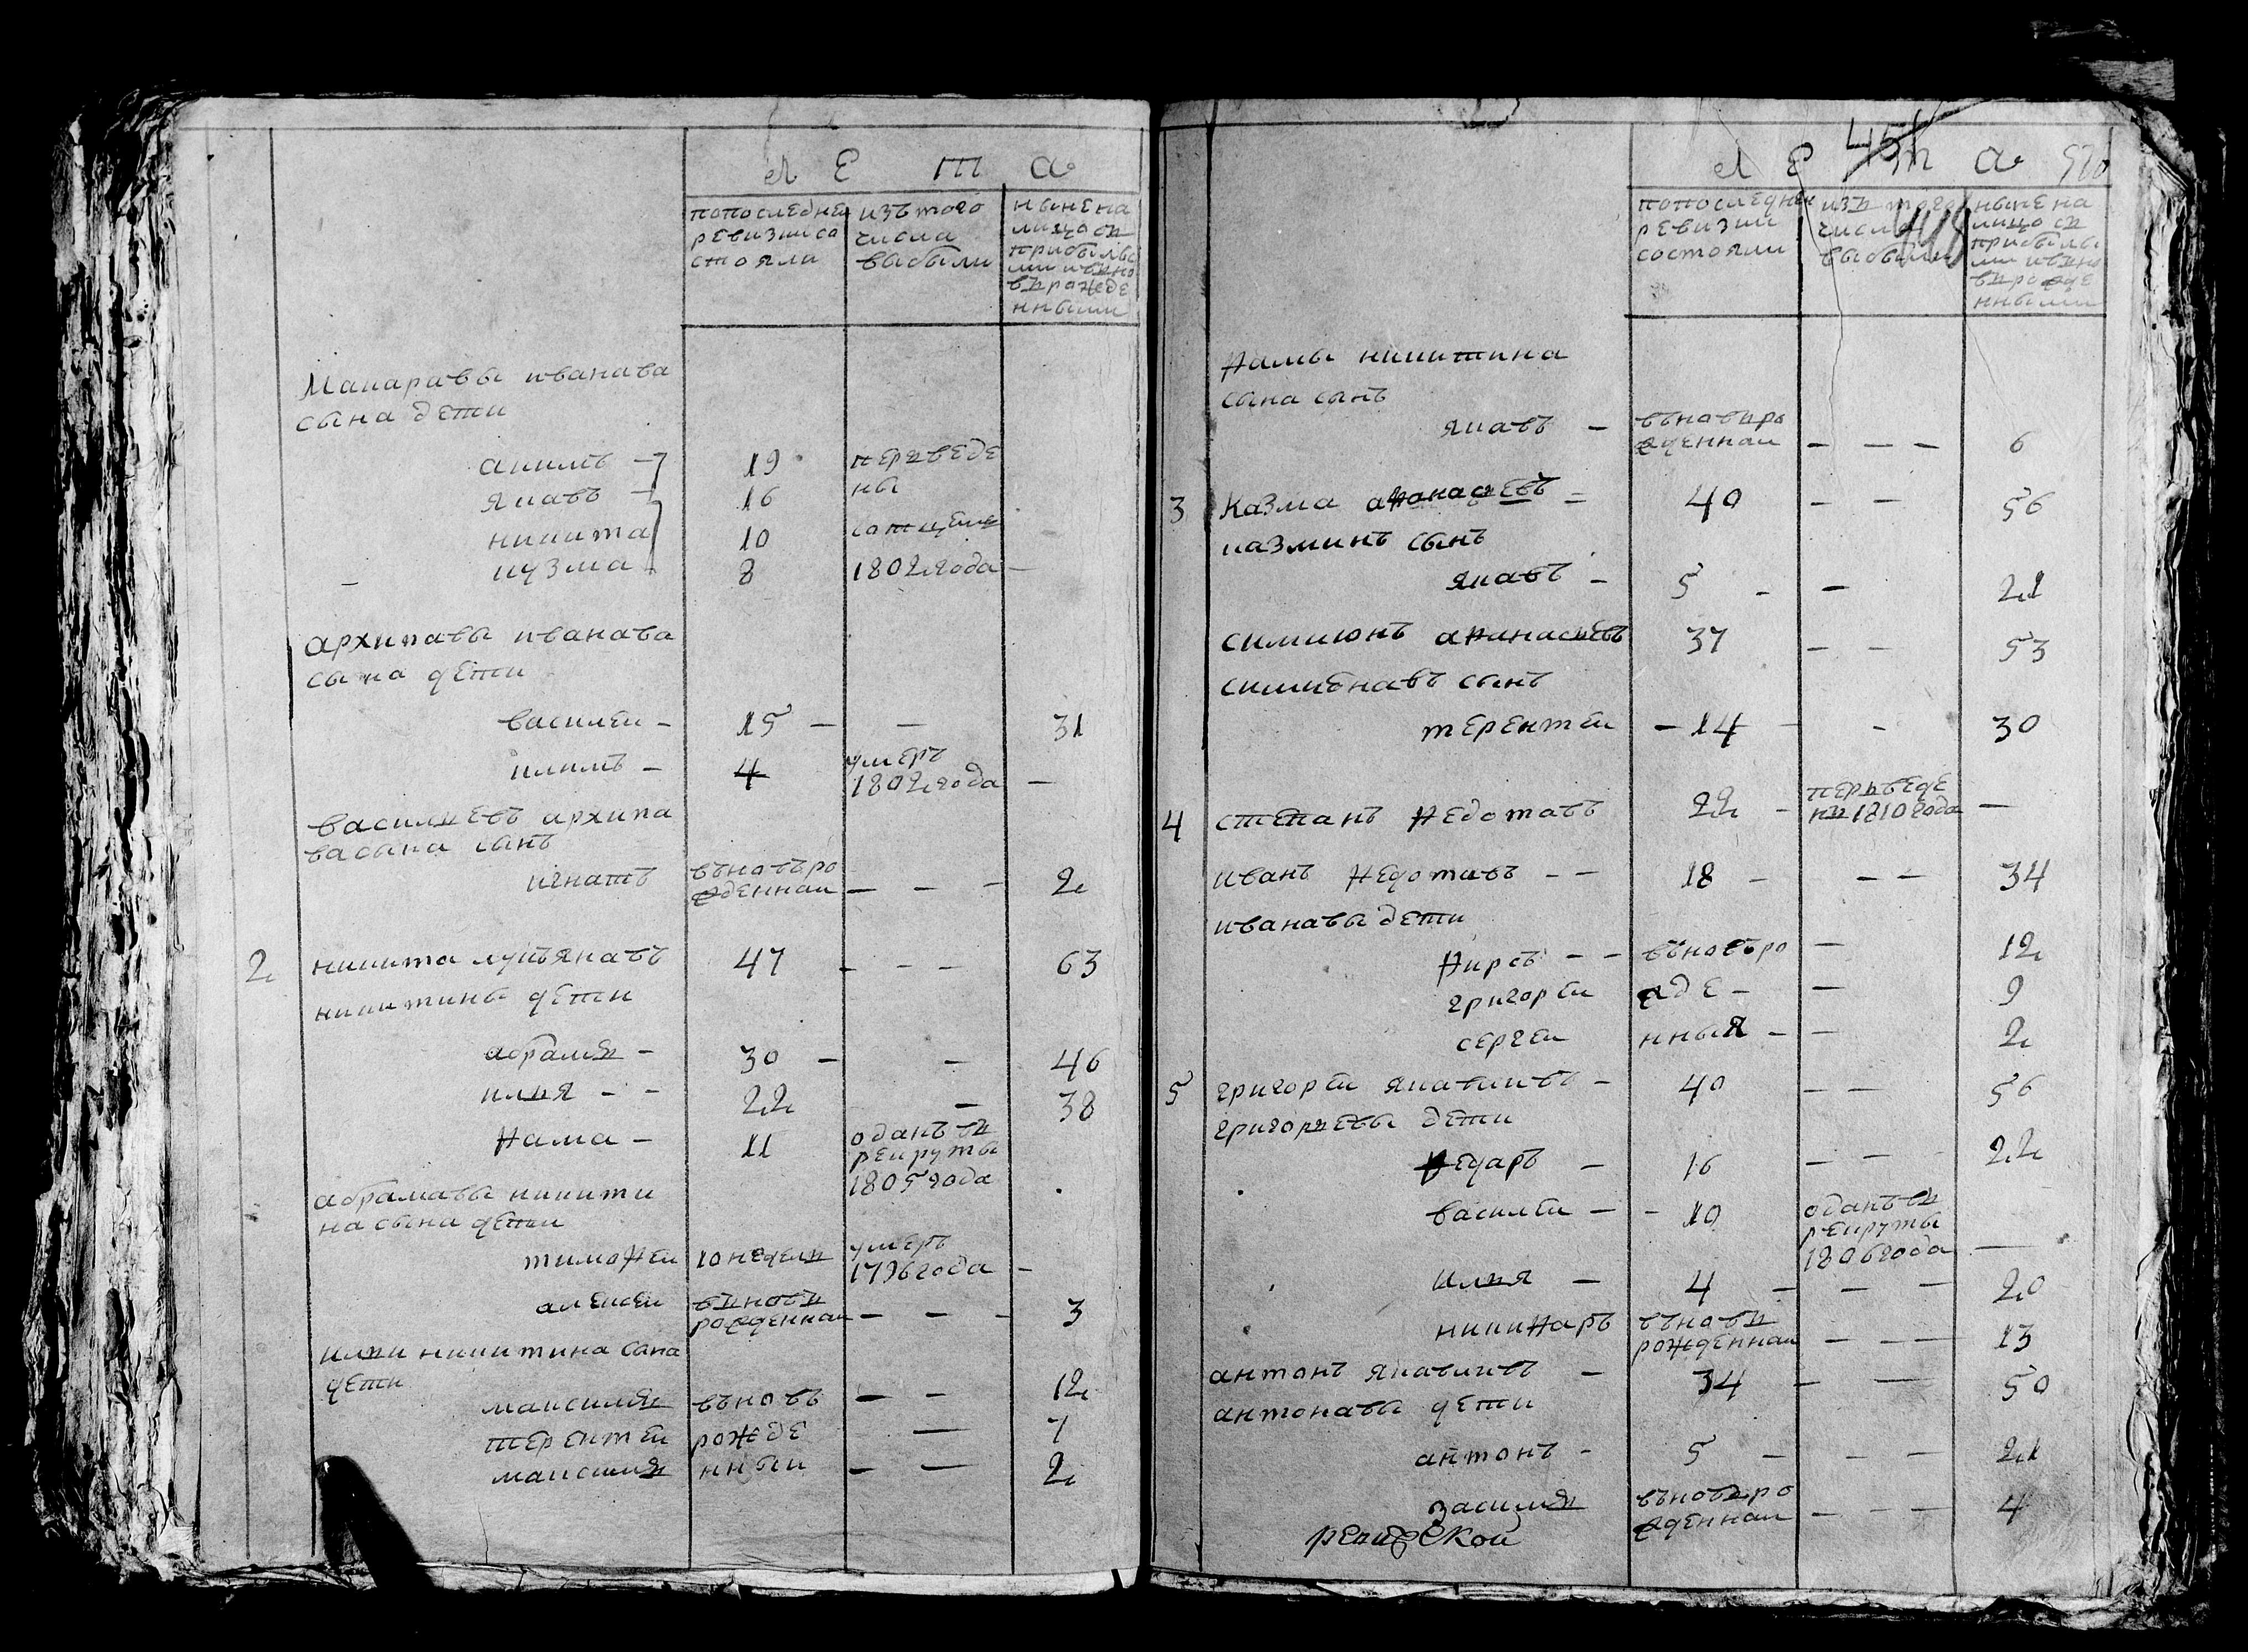 лета
попоследнеи
ревизиисо
стояли
изътого
числа
выбыли
нынена
лицосъ
прибылы
миивъно
въроиеде
нными
Макаравы иванава
сына дети
акимъ — 19 переведе
яковъ — 16 ны
никита 10
кузма 8 1802 года —
архипавы иванава
сына дети
василеи — 15 — — 31
климъ — 4 умеръ
1802 года —
василиевъ архипа
васына сынъ
игнатъ въновъро
жденнаи — — — 2
2 никита лукъянавъ 47 — — — 63
никитины дети
абрамъ — 30 — — 46
илья — — 22 — 38
фама — 11 оданъ въ
рекруты
1805 года
абрамавы никити
на сына дети
тимофеи 10 недель умеръ
1796 года —
алексеи въновъ
рожденнаи — — — 3
ильи никитина сана
дети
максимъ въновъ — — 12
терентеи рожде — 7
максимъ нныи — — 2
лета
попоследнеи
ревизии
состояли
изъ того
числа
выбыли
нынена
лицо съ
прибылы
ми ивъно
въро жде
нными
фамы никитина
сына сынъ
якавъ — въновъро
жденнаи — — — 6
3 казма афанасъевъ = 40 — — 56
казминъ сынъ
якавъ — 5 — — 21
симиюнъ афанасьевъ 37 — — 53
симионавъ сынъ
терентеи — 14 — — 30
4 степанъ федотавъ 22 — переведе
нъ 1810 года —
иванъ федотавъ — — 18 — — — 34
иванавы дети
фирсъ — — въновъро — 12
григореи жде — — 9
сергеи нныя — — 2
5 григореи якавливъ — 40 — — 56
григорьевы дети
федаръ — 16 — — — 22
василеи — — 10 оданъ въ
рекруты
1806 года —
илья — 4 — — — 20
никифаръ въновъ
рожденнаи — — — 13
антонъ якавливъ — 34 — — 50
антонавы дети
антонъ — 5 — — — 21
василеи въновъро
жденнаи — — — 4